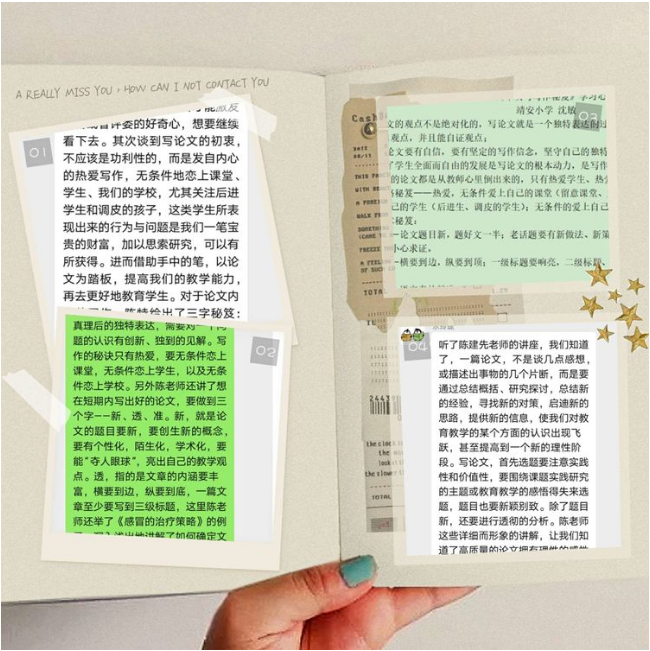 A REALLY MISS YOU , HOW CAN I NOT CONTACT YOU
01
的好奇心，想要继续
看下去。其次谈到写论文的初衷，
不应该是功利性的，而是发自内心
的热爱写作，无条件地恋上课堂、
学生、我们的学校，尤其关注后进
学生和调皮的孩子，这类学生所表
现出来的行为与问题是我们一笔宝
贵的财富，加以思索研究，可以有
所获得。进而借助手中的笔，以论
文为踏板，提高我们的教学能力，
再去更好地教育学生。对于论文内
02
真理后的独特表达，需要对一个问
题的认识有创新、独到的见解。写
作的秘诀只有热爱，要无条件恋上
课堂，无条件恋上学生，以及无条
件恋上学校。另外陈老师还讲了想
在短期内写出好的论文，要做到三
个字——新、透、准。新，就是论
文的题目要新，要创生新的概念，
要有个性化，陌生化，学术化，要
能“夺人眼球”，亮出自己的教学观
点。透，指的是文章的内涵要丰
富，横要到边，纵要到底，一篇文
章至少要写到三级标题，这里陈老
师还举了《感冒的治疗策略》的例
03
靖安小学 沈敏
文的观点不是绝对化的，写论文就是一个独特表达的过
观点，并且能自证观点；
论文要有自信，要有坚定的写作信念，坚守自己的独特
了学生全面而自由的发展是写论文的根本动力，是写作
的论文都是从教师心里倒出来的，只有热爱学生、热爱
秘笈——热爱，无条件爱上自己的课堂（留意课堂、
己的学生（后进生、调皮的学生）；无条件的爱上自己
秘笈：
—论文题目新，题好文一半；老话题要有新做法、新策
小心求证。
—横要到边，纵要到顶；一级标题要响亮，二级标题、
TOTAL
04
听了陈建先老师的讲座，我们知道
了，一篇论文，不是谈几点感想，
或描述出事物的几个片断，而是要
通过总结概括、研究探讨，总结新
的经验，寻找新的对策，启迪新的
思路，提供新的信息，使我们对教
育教学的某个方面的认识出现飞
跃，甚至提高到一个新的理性阶
段。写论文，首先选题要注意实践
性和价值性，要围绕课题实践研究
的主题或教育教学的感悟得失来选
题，题目也要新颖别致。除了题目
新，还要进行透彻的分析。陈老师
这些详细而形象的讲解，让我们知
道了高质量的论文拥有理性的感性
TOTAL